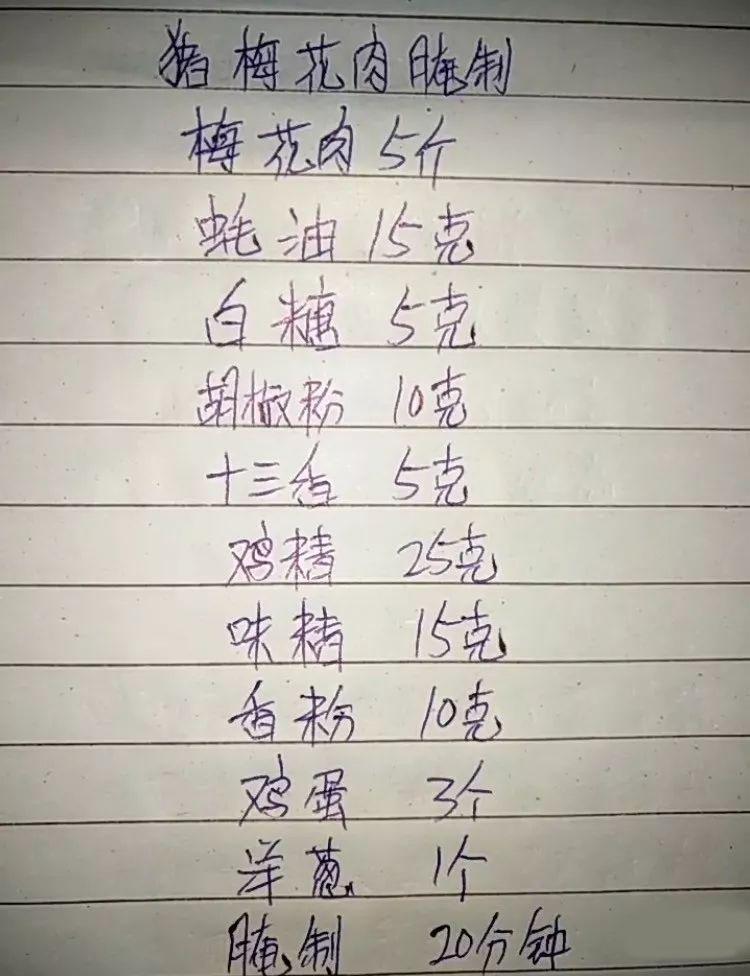 猪梅花肉腌制
梅花肉 5斤
蚝油 15克
白糖 5克
胡椒粉 10克
十三香 5克
鸡精 25克
味精 15克
香粉 10克
鸡蛋 3个
洋葱 1个
腌制 20分钟